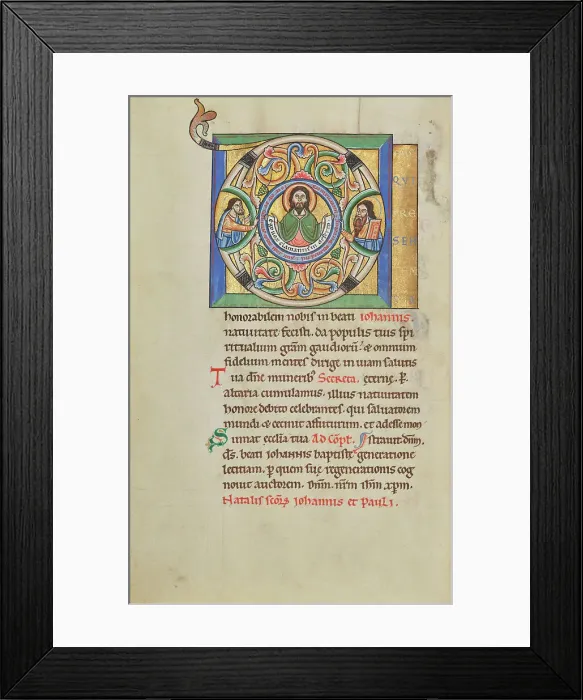 honorabilem nobis in beati iohannis.
natiuitate fecisti. da populis tuis spi
ritualium grām gaudiorū. & omnium
fidelium mentes dirige in uiam salutis
Tua dñe munerib; Secreta. eterne. P.
altaria cumulamus. illius natiuitatem
honore debito celebrantes. qui saluatorem
mundi & cecinit affuturum. et adesse mon
Sumat ecclīa tua Ad Cōpl. strauit. dñm.
ds. beati iohannis baptiste generatione
letitiam. p quem sue regenerationis cog
nouit auctorem. dñm. nrm ihm. xpm.
Natalis scōr; iohannis et pauli.